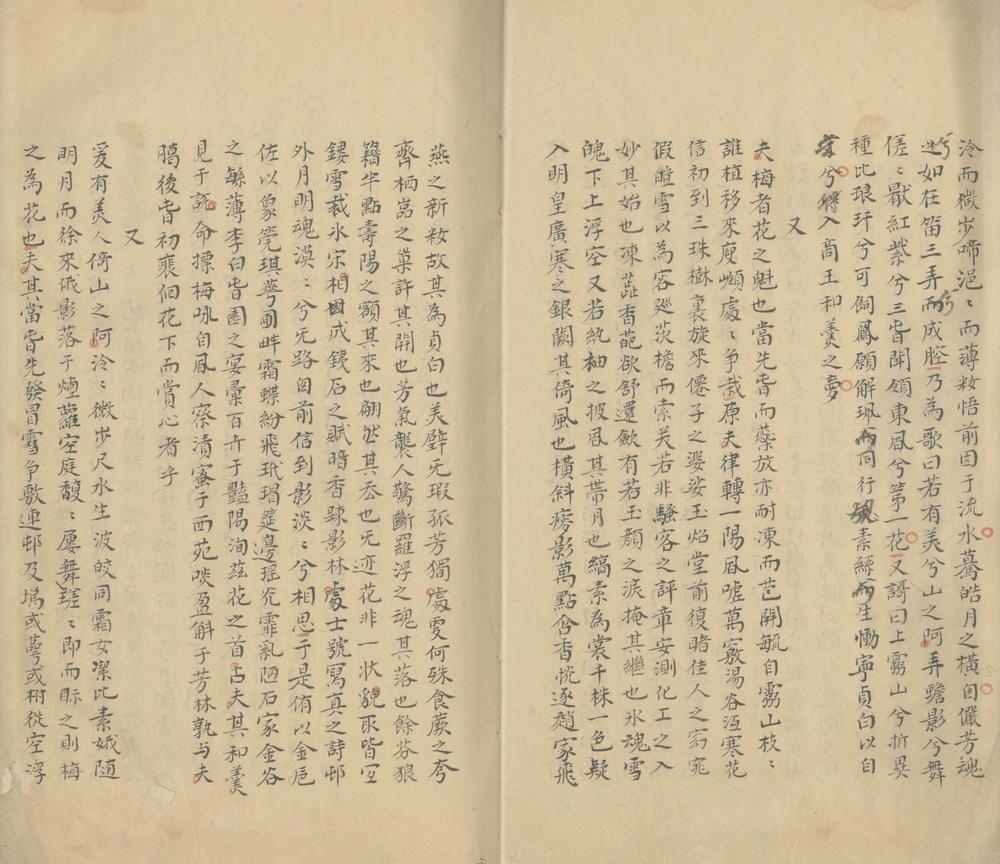 泠而微步啼浥〻而薄粧悟前因于流水驀皓月之橫囪儼芳魂
如在笛三弄而成腔乃為歌曰若有美兮山之阿弄蟾影兮舞
傞〻厭紅紫兮三旹開領東風兮苐一花又謌曰上霧山兮折異
種比琅玕兮可飼鳳願解珮而同行素絲而生慟寧貞白以自
兮入商王和羹之夢
又
夫梅者花之魁也當先旹而蘂放亦耐凍而苞開毓自霧山枝〻
誰植移來庾嶺處〻争栽原夫律轉一陽風噓萬竅湯谷沍寒花
信初到三珠樹裏旋來僊子之婆娑玉炤堂前復睹佳人之窈窕
假瞠雪以為容廵茨檐而索笑若非騷客之評章安測化工之入
妙其始也凍蕋香葩欲舒還歛有若玉顔之淚掩其繼也氷魂雪
魄下上浮空又若紈袖之披風其帶月也縞素為裳千株一色疑
入明皇廣寒之銀闕其倚風也橫斜瘦影萬點含香恍逐趙家飛
燕之新粧故其為貞白也美壁无瑕孤芳獨處雯何殊食蕨之夸
齊栖嵓之菓許其開也芳氣襲人驚斷羅浮之魂其落也餘芬狼
籍半點壽陽之額其來也翩然其忝也无迹花非一狀貌取皆空
鏤雪裁氷宋相國成銕石之賦暗香踈影林處士號寫真之詩邨
外月明魂漠〻兮无路囪前信到影淡〻兮相思于是侑以金巵
佐以象筦琪萼圃畔霜蝶紛飛玳瑁筵邊瑶光霏乳陋石家金谷
之緐薄李白旹園之宴彙百卉于豔陽洵玆花之首占夫其和羹
見于説命摽梅吟自風人察漬蜜于西苑啖盈斛于芳林孰与夫
臈後旹初裵佪花下而賞心者乎
又
爰有美人倚山之阿泠〻微步尺水生波皎同霜女潔比素娥随
明月而徐來俄影落于煙蘿空庭馥〻屢舞瑳〻即而眎之則梅
之為花也夫其當旹先發冒雪争敷連邨及塢或蕚或柎從空浮